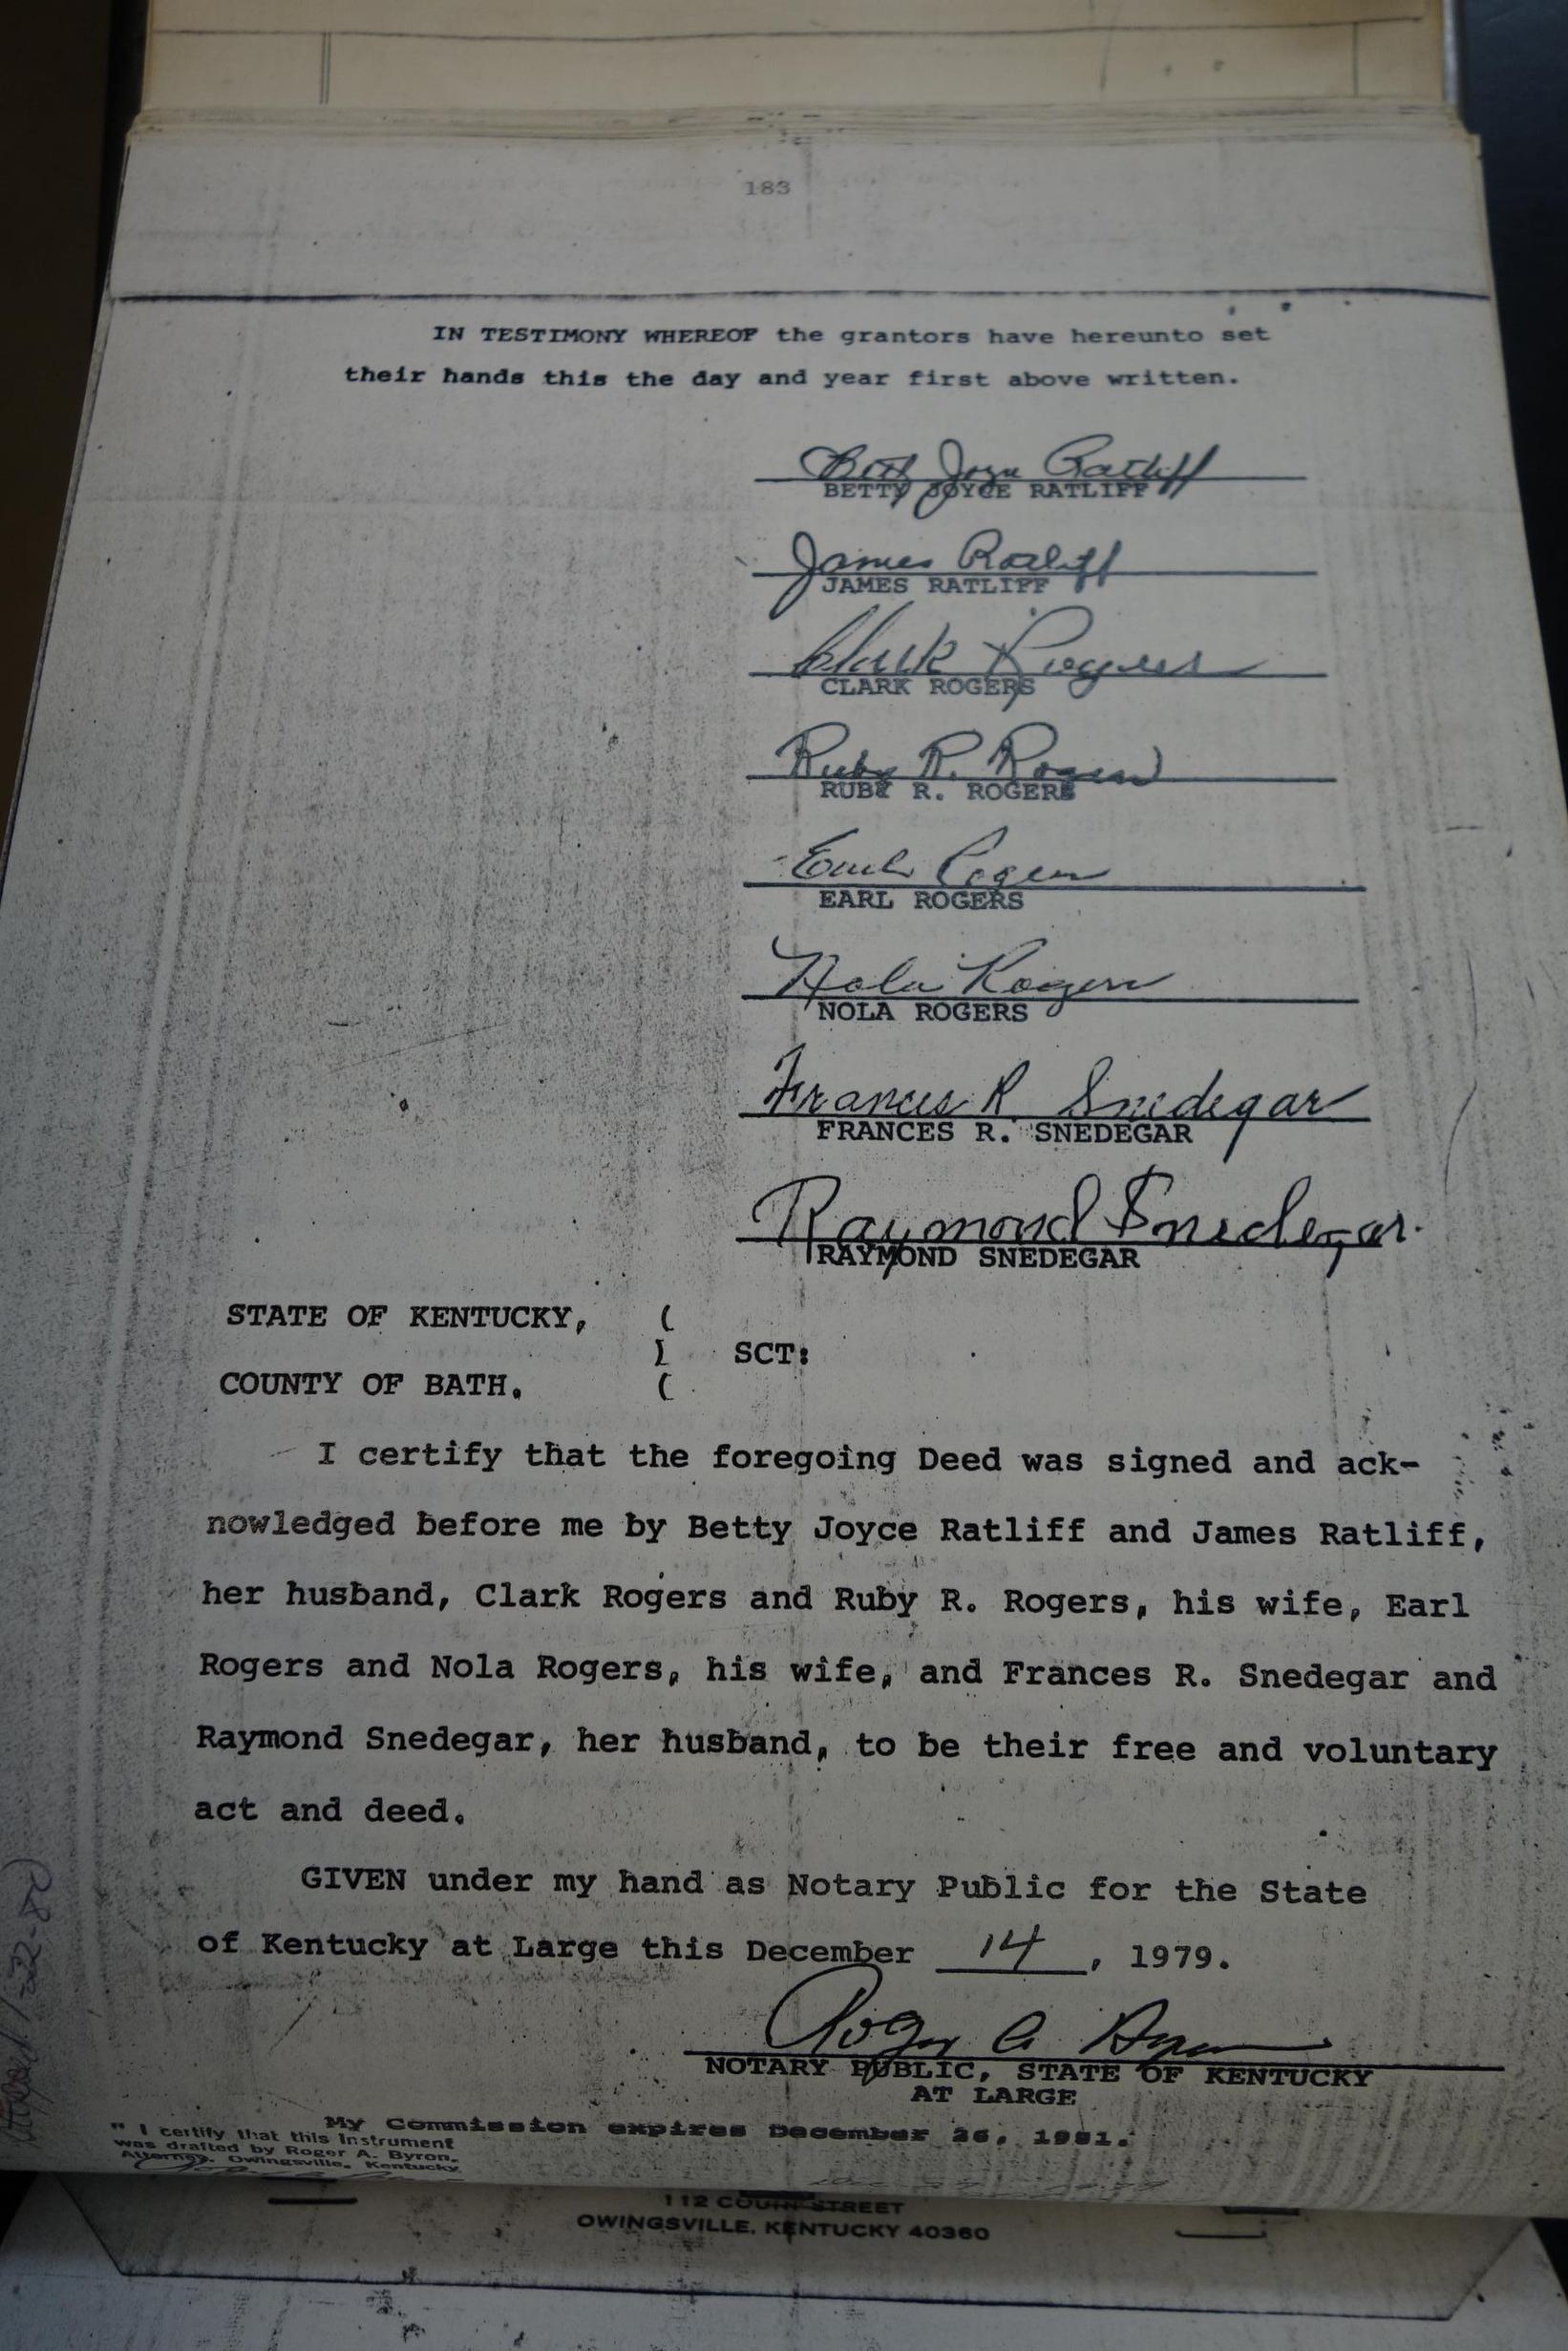 183
IN TESTIMONY WHEREOF the grantors have hereunto set
their hands this the day and year first above written.
Betty Joyce Ratliff
BETTY JOYCE RATLIFF
James Ratliff
JAMES RATLIFF
Clark Rogers
CLARK ROGERS
Ruby R. Rogers
RUBY R. ROGERS
Earl Rogers
EARL ROGERS
Nola Rogers
NOLA ROGERS
Frances R Snedegar
FRANCES R. SNEDEGAR
Raymond Snedegar.
RAYMOND SNEDEGAR
STATE OF KENTUCKY, (
) SCT:
COUNTY OF BATH. (
I certify that the foregoing Deed was signed and ack-
nowledged before me by Betty Joyce Ratliff and James Ratliff,
her husband, Clark Rogers and Ruby R. Rogers, his wife, Earl
Rogers and Nola Rogers, his wife, and Frances R. Snedegar and
Raymond Snedegar, her husband, to be their free and voluntary
act and deed.
GIVEN under my hand as Notary Public for the State
of Kentucky at Large this December 14, 1979.
Roger A. Byron
NOTARY PUBLIC, STATE OF KENTUCKY
AT LARGE
My Commission expires December 26, 1981.
" I certify that this Instrument
was drafted by Roger A. Byron,
Attorney, Owingsville, Kentucky
112 COURT STREET
OWINGSVILLE, KENTUCKY 40360